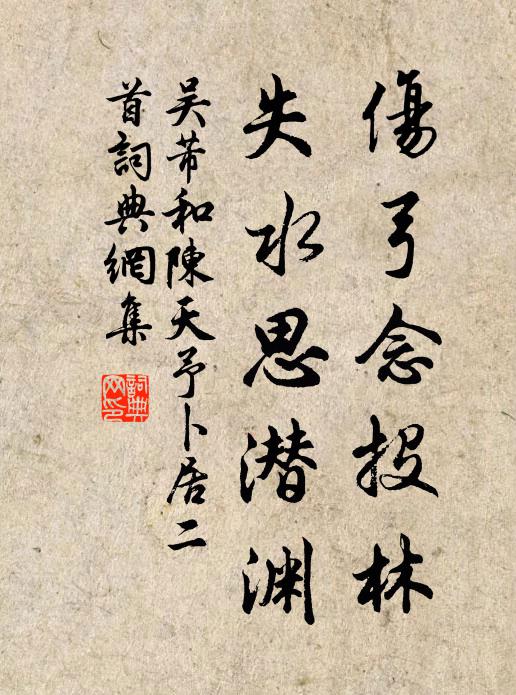 傷弓念投林
失水思潜渊
吴芾和陳天予卜居二
首詞典網集
詞典网印